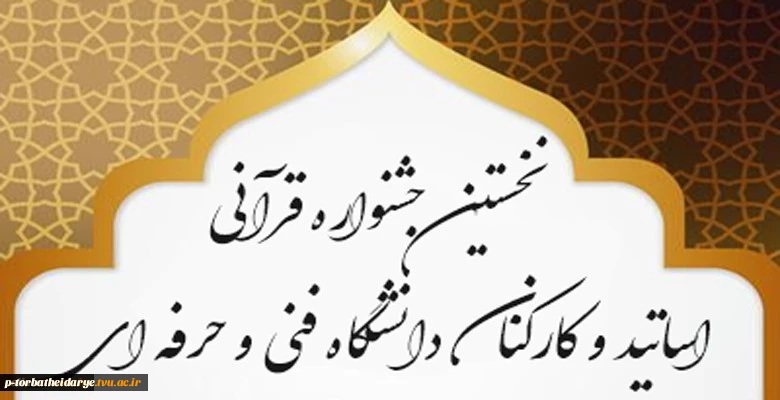 نخستین جشنواره قرآنی
اساتید و کارکنان دانشگاه فنی و حرفه ای
p-torbatheidarye.tvu.ac.ir